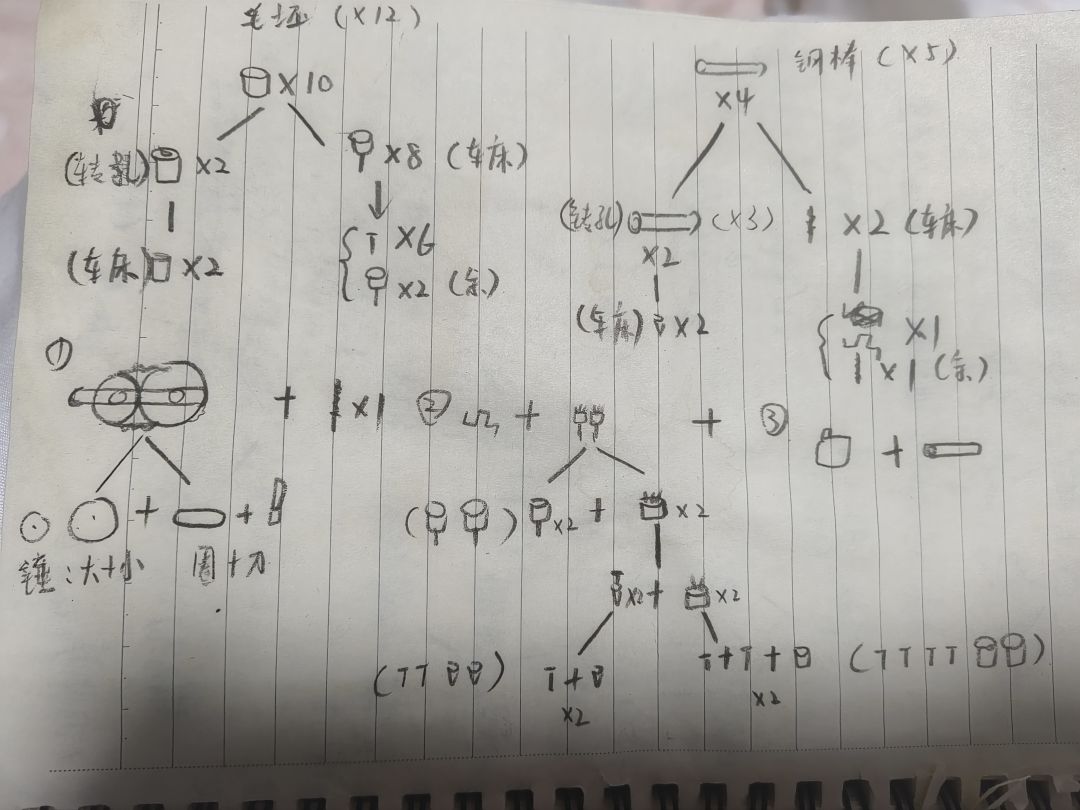 毛坯（×12）
钢棒（×5）
×10
×4
×2
×8（车床）
（钻孔）
（×3）
×2（车床）
（车床）
×2
×6
×2
×2（余）
（车床）
×2
×1
×1（余）
①
+
×1
②
+
+
③
+
+
+
×2
+
×2
锤：大+小
圈+刀
×2
+
×2
（TT
）
T+
T+T+
（TTTT
）
×2
×2